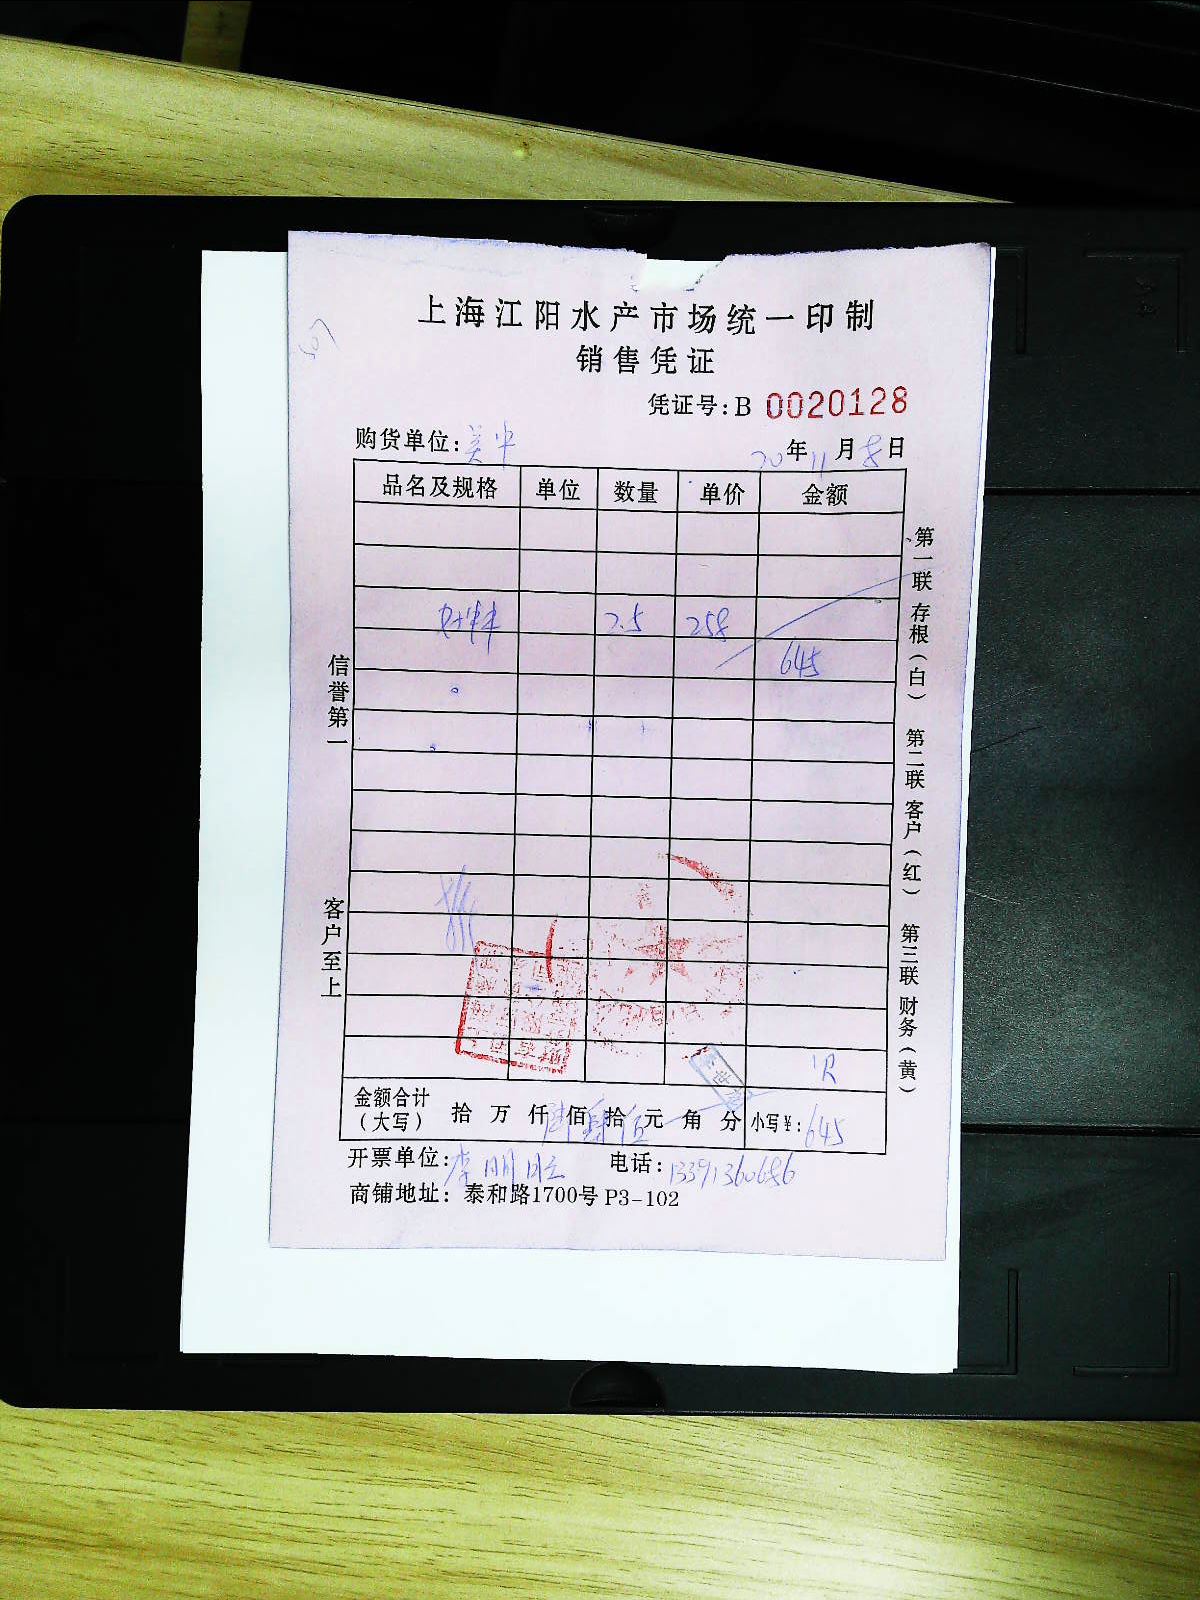 上海江阳水产市场统一印制
销售凭证
凭证号:B 0020128
购货单位:吴中 20年11月8日
品名及规格 单位 数量 单价 金额
2.5 258
645
信誉第一
客户至上
第一联 存根(白) 第二联 客户(红) 第三联 财务(黄)
金额合计(大写) 拾 万 仟 陆佰肆拾伍元 角 分 小写¥:645
开票单位:李明 电话:13391360686
商铺地址: 泰和路1700号 P3-102